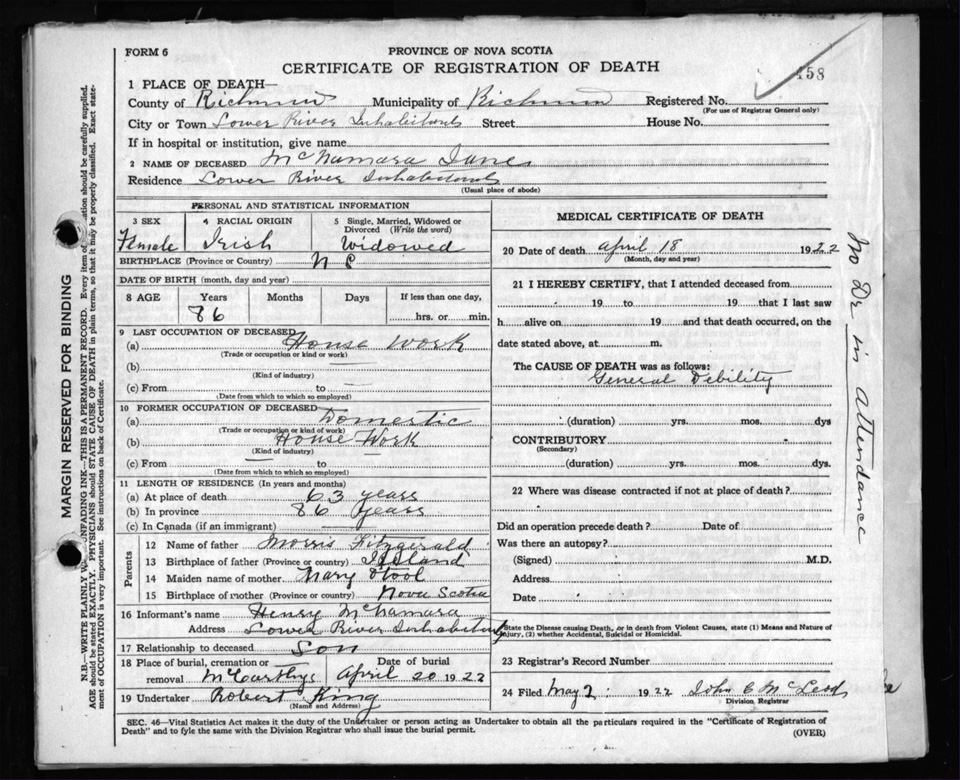 FORM 6
PROVINCE OF NOVA SCOTIA
CERTIFICATE OF REGISTRATION OF DEATH
458
1 PLACE OF DEATH—
County of Richmond Municipality of Richmond Registered No.
(For use of Registrar General only)
City or Town Lower River Inhabitants Street House No.
If in hospital or institution, give name
2 NAME OF DECEASED McNamara Jane
Residence Lower River Inhabitants
(Usual place of abode)
PERSONAL AND STATISTICAL INFORMATION
3 SEX 4 RACIAL ORIGIN 5 Single, Married, Widowed or Divorced (Write the word)
Female Irish Widowed
BIRTHPLACE (Province or Country) N S
DATE OF BIRTH (month, day and year)
8 AGE Years Months Days If less than one day,
86 hrs. or min.
9 LAST OCCUPATION OF DECEASED
(a) House Work
(Trade or occupation or kind or work)
(b) —
(Kind of industry)
(c) From to —
(Date from which to which so employed)
10 FORMER OCCUPATION OF DECEASED
(a) Domestic
(Trade or occupation or kind of work)
(b) House Work
(Kind of industry)
(c) From — to —
(Date from which to which so employed)
11 LENGTH OF RESIDENCE (In years and months)
(a) At place of death 63 years
(b) In province 86 years
(c) In Canada (if an immigrant) —
Parents
12 Name of father Morris Fitzgerald
13 Birthplace of father (Province or country)
14 Maiden name of mother Mary O'tool
15 Birthplace of mother (Province or country) Nova Scotia
16 Informant's name Henry McNamara
Address Lower River Inhabitants
17 Relationship to deceased Son
18 Place of burial, cremation or removal McCarthys Date of burial April 20 1922
19 Undertaker Robert King
(Name and Address)
MEDICAL CERTIFICATE OF DEATH
20 Date of death April 18 1922
(Month, day and year)
21 I HEREBY CERTIFY, that I attended deceased from
19 to 19 that I last saw
h alive on 19 and that death occurred, on the
date stated above, at m.
The CAUSE OF DEATH was as follows:
General Debility
(duration) yrs. mos. dys
CONTRIBUTORY
(Secondary)
(duration) yrs. mos. dys.
22 Where was disease contracted if not at place of death?
Did an operation precede death? Date of
Was there an autopsy?
(Signed) M.D.
Address
Date
State the Disease causing Death, or in death from Violent Causes, state (1) Means and Nature of
Injury, (2) whether Accidental, Suicidal or Homicidal.
23 Registrar's Record Number
24 Filed May 2 1922 John C McLeod
Division Registrar
SEC. 46—Vital Statistics Act makes it the duty of the Undertaker or person acting as Undertaker to obtain all the particulars required in the "Certificate of Registration of
Death" and to fyle the same with the Division Registrar who shall issue the burial permit.
(OVER)
No Dr in attendance
MARGIN RESERVED FOR BINDING
N.B.—WRITE PLAINLY UNFADING INK—THIS IS A PERMANENT RECORD. Every item of should be carefully supplied.
AGE should be stated EXACTLY. PHYSICIANS should STATE CAUSE OF DEATH in plain terms, so that it may be properly classified. Exact state-
ment of OCCUPATION is very important. See instructions on back of Certificate.